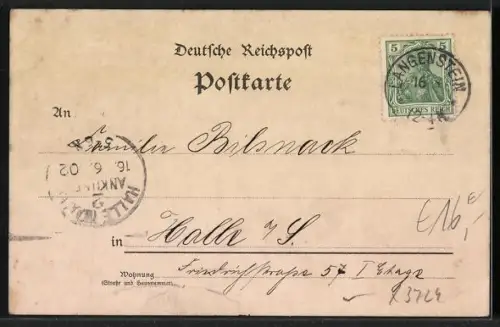 Deutsche Reichspost
Postkarte
5 5
DEUTSCHES REICH
LANGENSTEIN
16
An
Familie Bilsnack
16.6.02
HALLE (SAALE)
2
in Halle a/S.
Wohnung
(Straße und Hausnummer)
Friedrichstraße 57 I Etage
€16,-